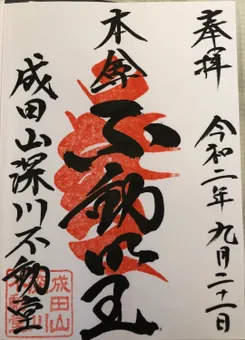 奉拝
令和二年九月二十一日
本尊
不動明王
成田山深川不動堂
成田山